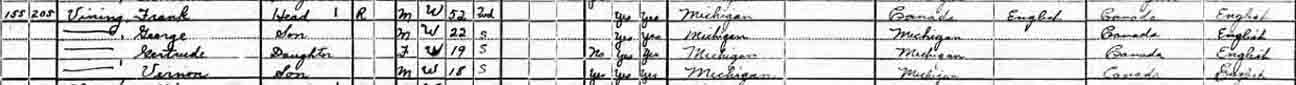 155 205 Vining, Frank Head 1 R M W 52 Wd Yes Yes Michigan Canada English Canada English
——, George Son M W 22 S Yes Yes Michigan Michigan Canada English
——, Gertrude Daughter F W 19 S No Yes Yes Michigan Michigan Canada English
——, Vernon Son M W 18 S Yes Yes Yes Michigan Michigan Canada English